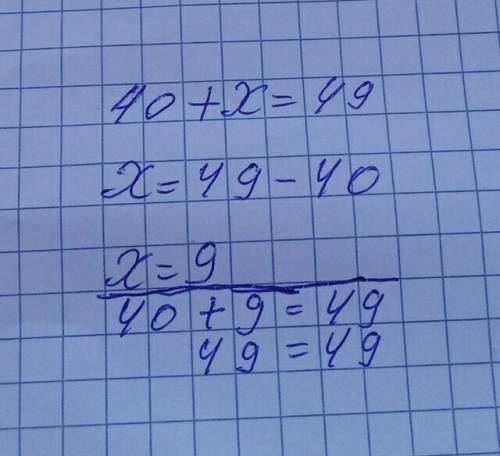 40+x=49
x=49-40
x=9
40+9=49
49=49